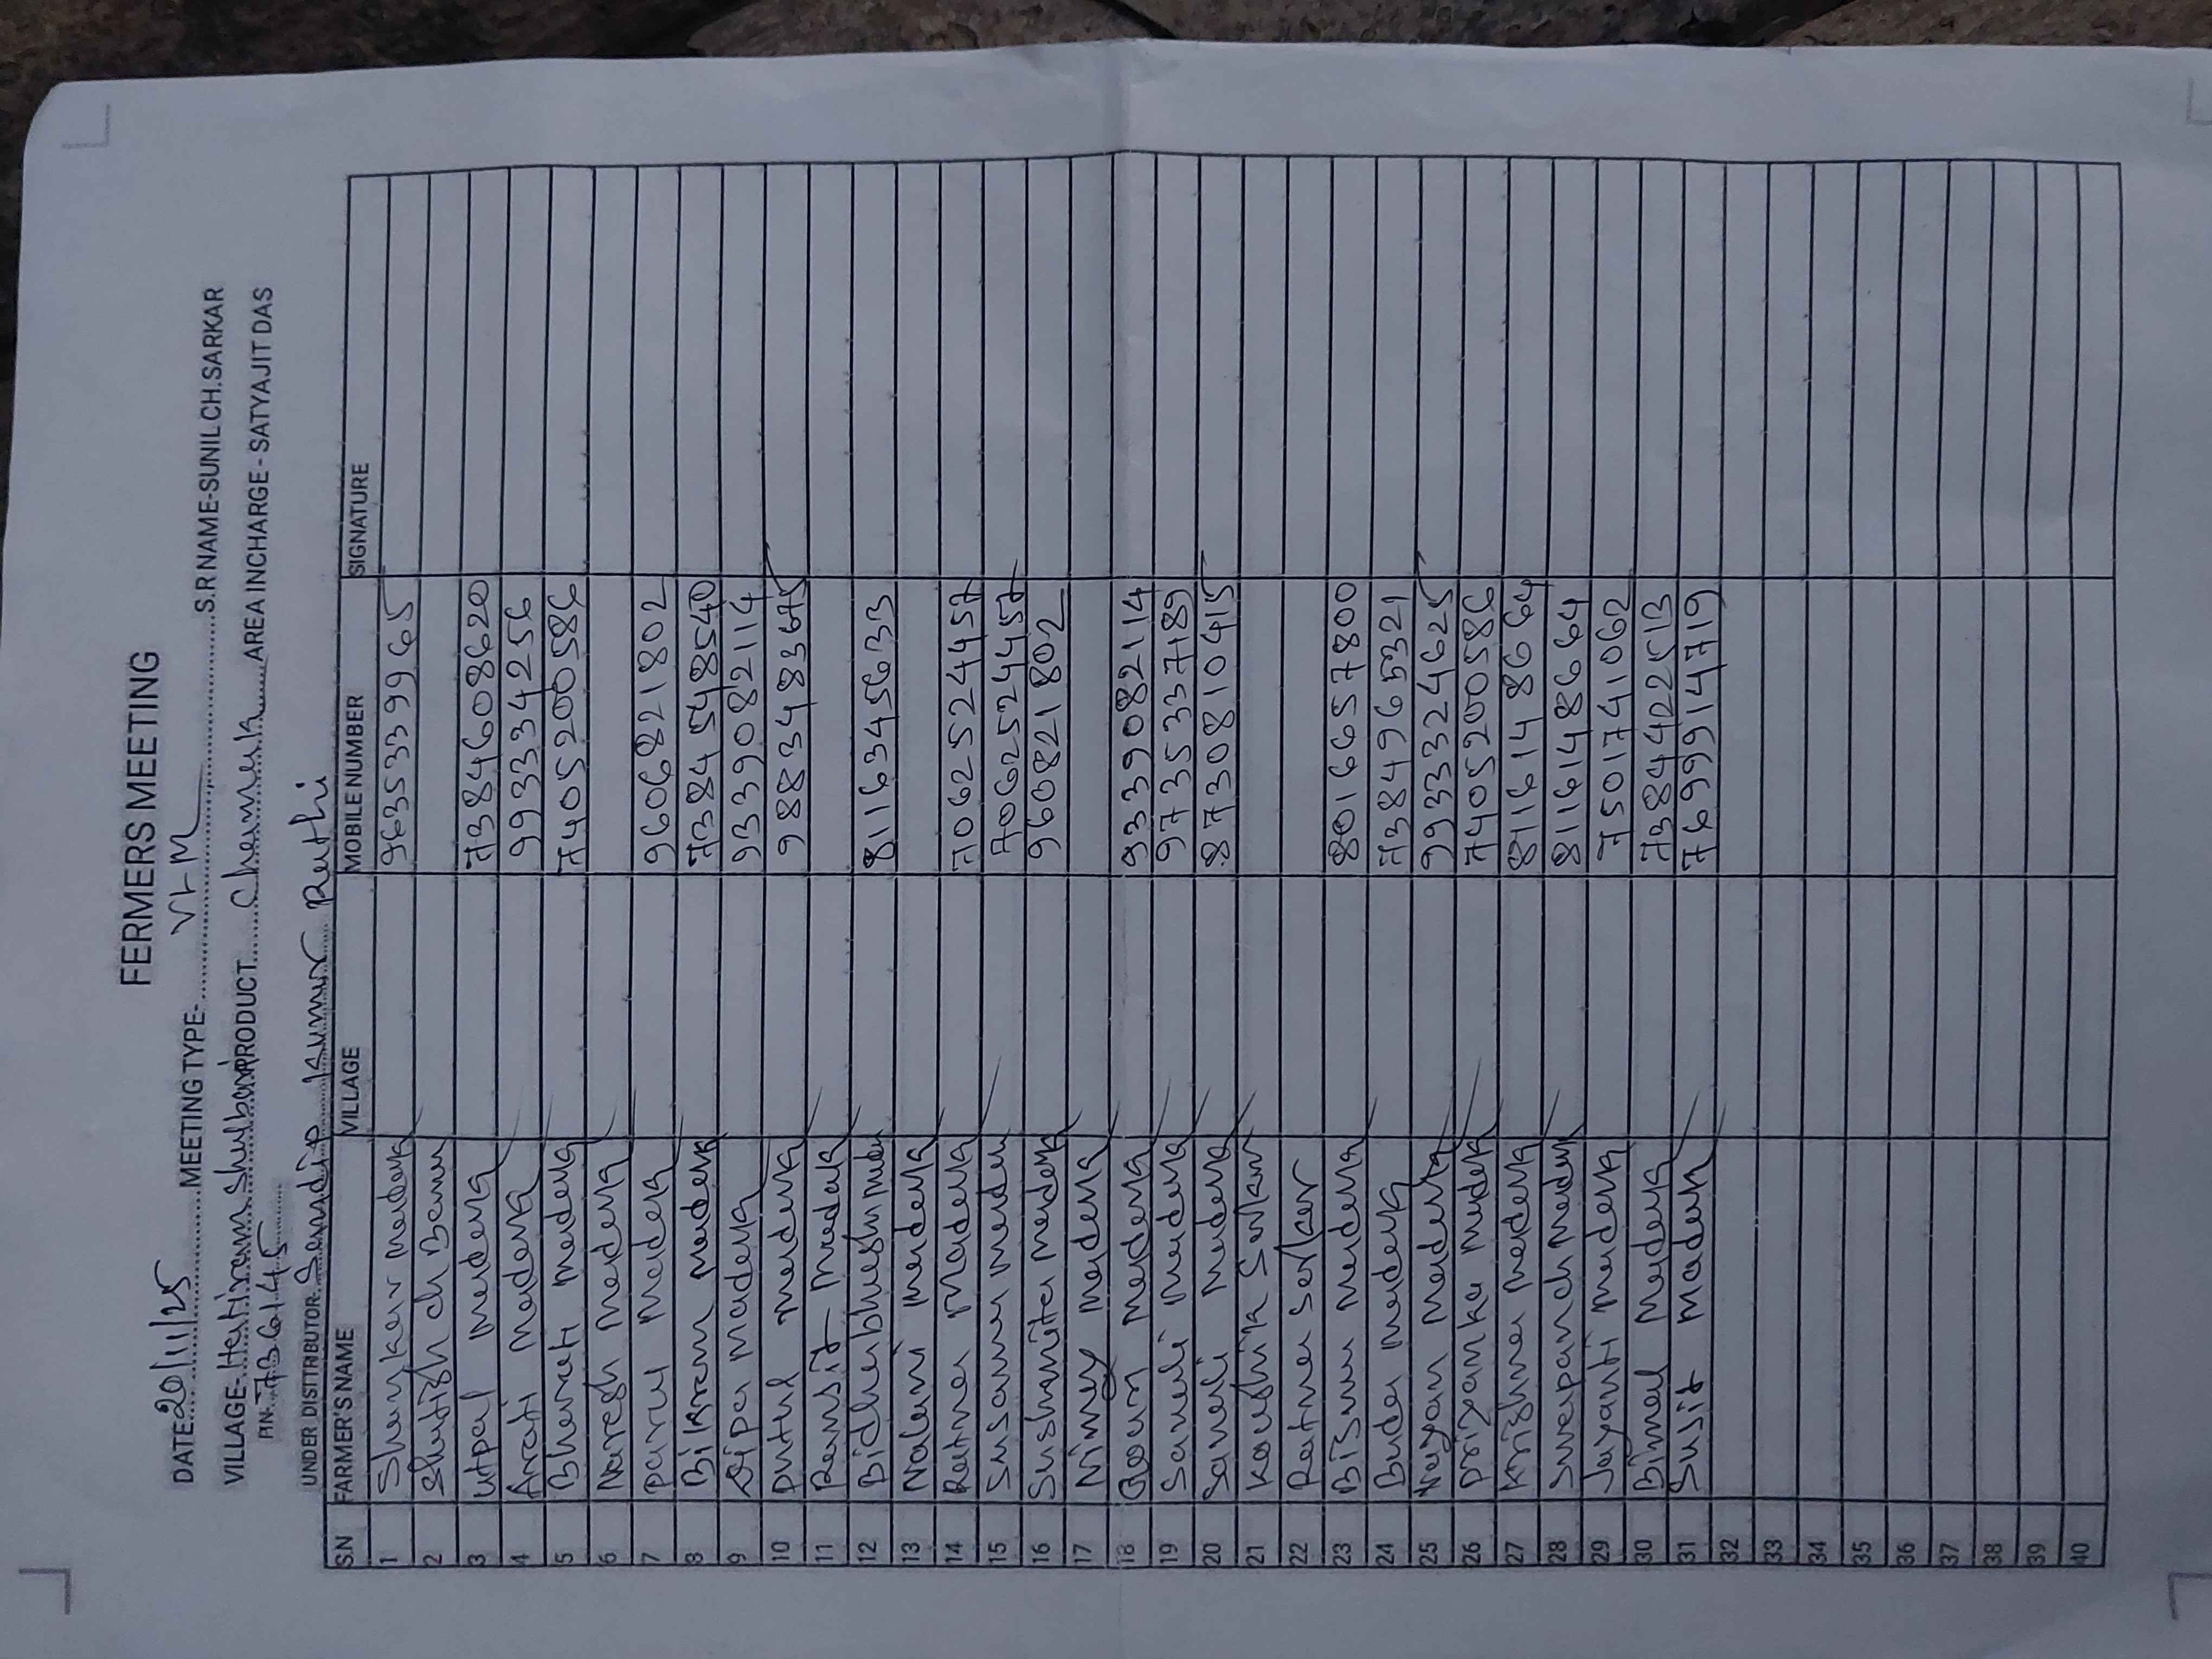 FERMERS MEETING
DATE:-20/11/25 MEETING TYPE- VLM S.R NAME-SUNIL CH.SARKAR
VILLAGE- Hatiram Shulbari PRODUCT Chamak AREA INCHARGE - SATYAJIT DAS
PIN- 736145
UNDER DISTTRIBUTOR- Sandip Kumar Rathi
S.N FARMER'S NAME VILLAGE MOBILE NUMBER SIGNATURE
1 Shankar madak 9635339965
2 Shutish ch Barman
3 Utpal madak 7384608620
4 Arati madak 993334256
5 Bharati madak 7405200586
6 Naresh madak
7 parul madak 9606821802
8 Bikram madak 7384548540
9 Dipa madak 9339082114
10 Putul madak 9883483675
11 Ramsit Madak
12 Bidhanbhushn madak 8116345633
13 Nalani madak
14 Ratna Madak 7062524457
15 Susanna madak 7062524457
16 Sushmita madak 960821802
17 Nimay madak
18 Gourn madak 9339082114
19 Samali madak 9735337189
20 Samali madak 8730810415
21 Koushik Sarkar
22 Ratna Sarkar
23 Bisnu madak 8016657800
24 Buda madak 7384965321
25 Nayan madak 9933324625
26 priyanka madak 7405200586
27 Krishna madak 8116148664
28 Swapanch madak 8116148664
29 Jayanti madak 7501741062
30 Bimal madak 7384422513
31 Susit madak 7699914719
32
33
34
35
36
37
38
39
40